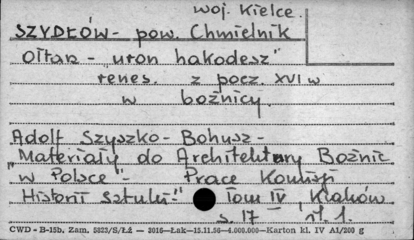 woj. Kielce.
SZYDŁÓW - pow. Chmielnik
Ołtarz - "uron hakodesz"
renes. z pocz. XVI w
w bożnicy.
Adolf Szyszko-Bohusz -
"Materiały do Architektury Bożnic
w Polsce" - Prace Komisji
Historii Sztuki - " Tom IV, Kraków
s. 17 il. 1.
CWD - B-15b, Zam. 5823/S/ŁŹ — 3016—Łak—15.11.56—4.000.000—Karton kl. IV A1/200 g